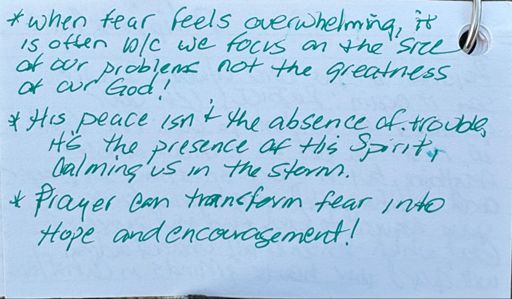 * When fear feels overwhelming, it
is often b/c we focus on the size
of our problems not the greatness
of our God!
* His peace isn't the absence of trouble,
it's the presence of His Spirit,
calming us in the storm.
* Prayer can transform fear into
Hope and encouragement!